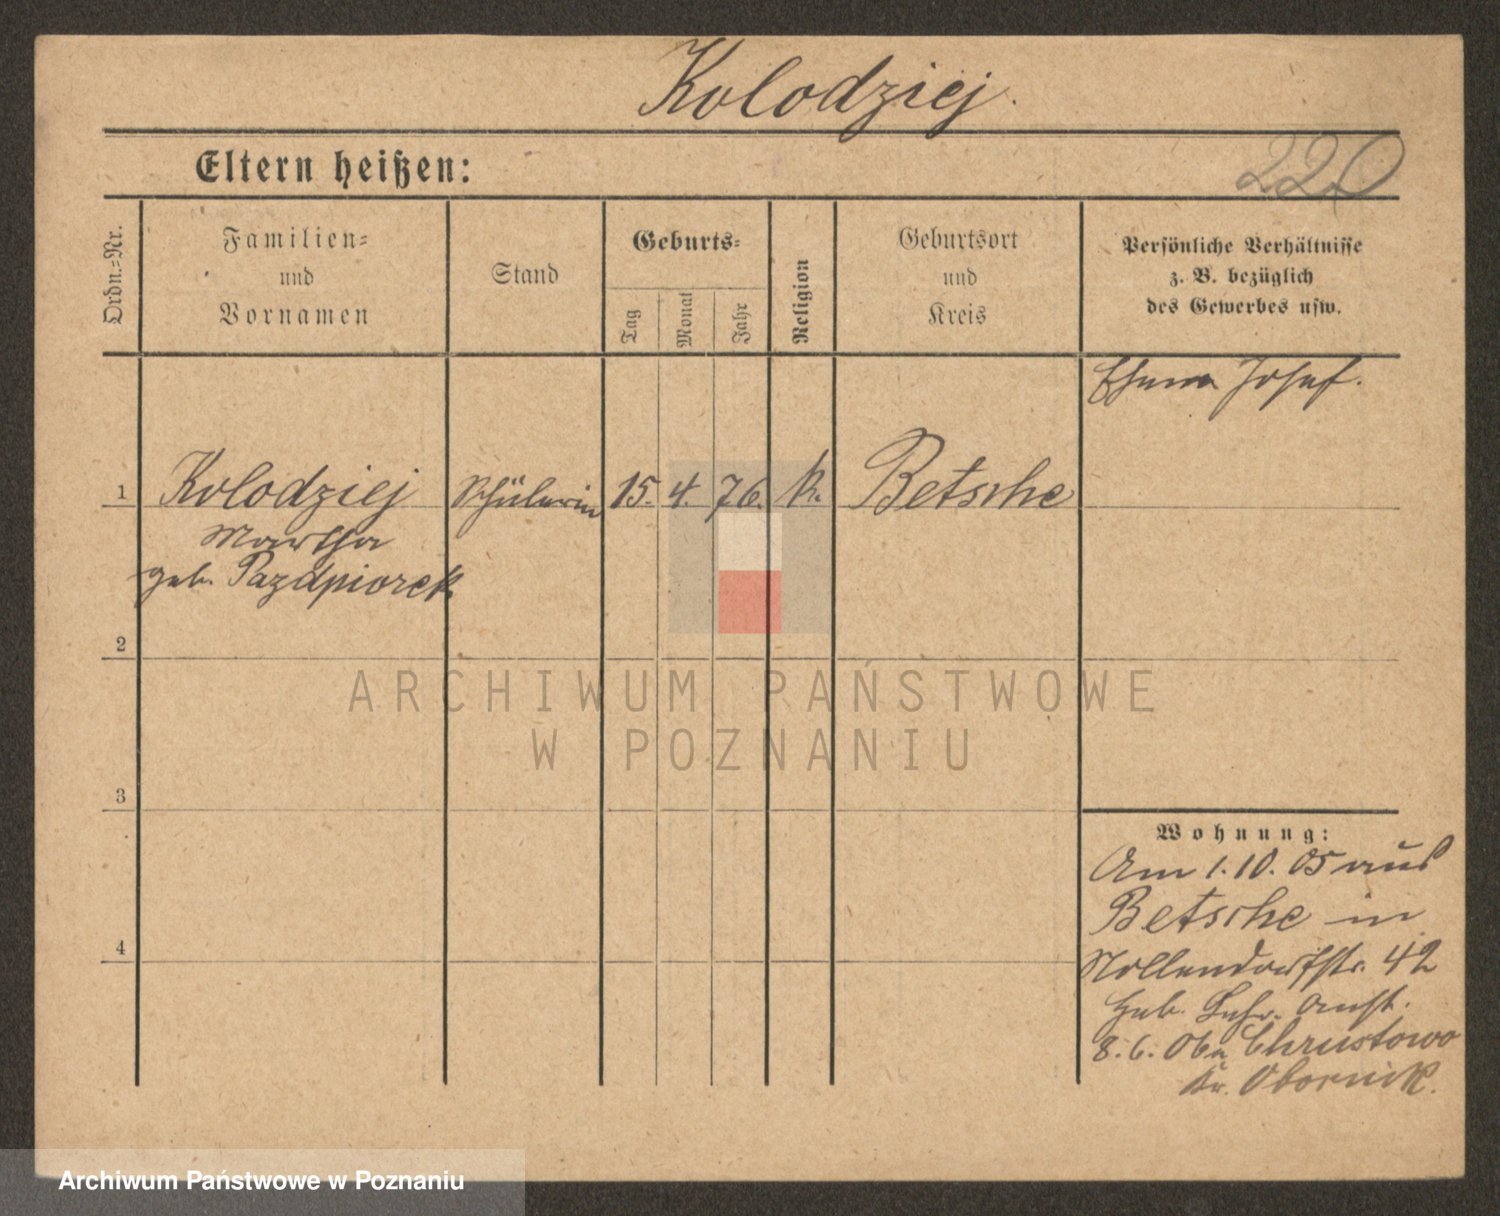 Kolodziej.
Eltern heißen:
220
Ordn.=Nr.
Familien=
und
Vornamen
Stand
Geburts=
Tag
Monat
Jahr
Religion
Geburtsort
und
Kreis
Persönliche Verhältnisse
z. B. bezüglich
des Gewerbes usw.
Ehem Josef.
1
Kolodziej
Schülerin
15.
4.
76.
k.
Betsche
Martha
geb. Pazdpiorek
2
ARCHIWUM PAŃSTWOWE
W POZNANIU
3
Wohnung:
Am 1.10.05 aus
Betsche in
4
Nollendorfstr. 42
Heb. Lehr. Anst.
8.6. 06 n Chrustowo
Kr. Obornik.
Archiwum Państwowe w Poznaniu